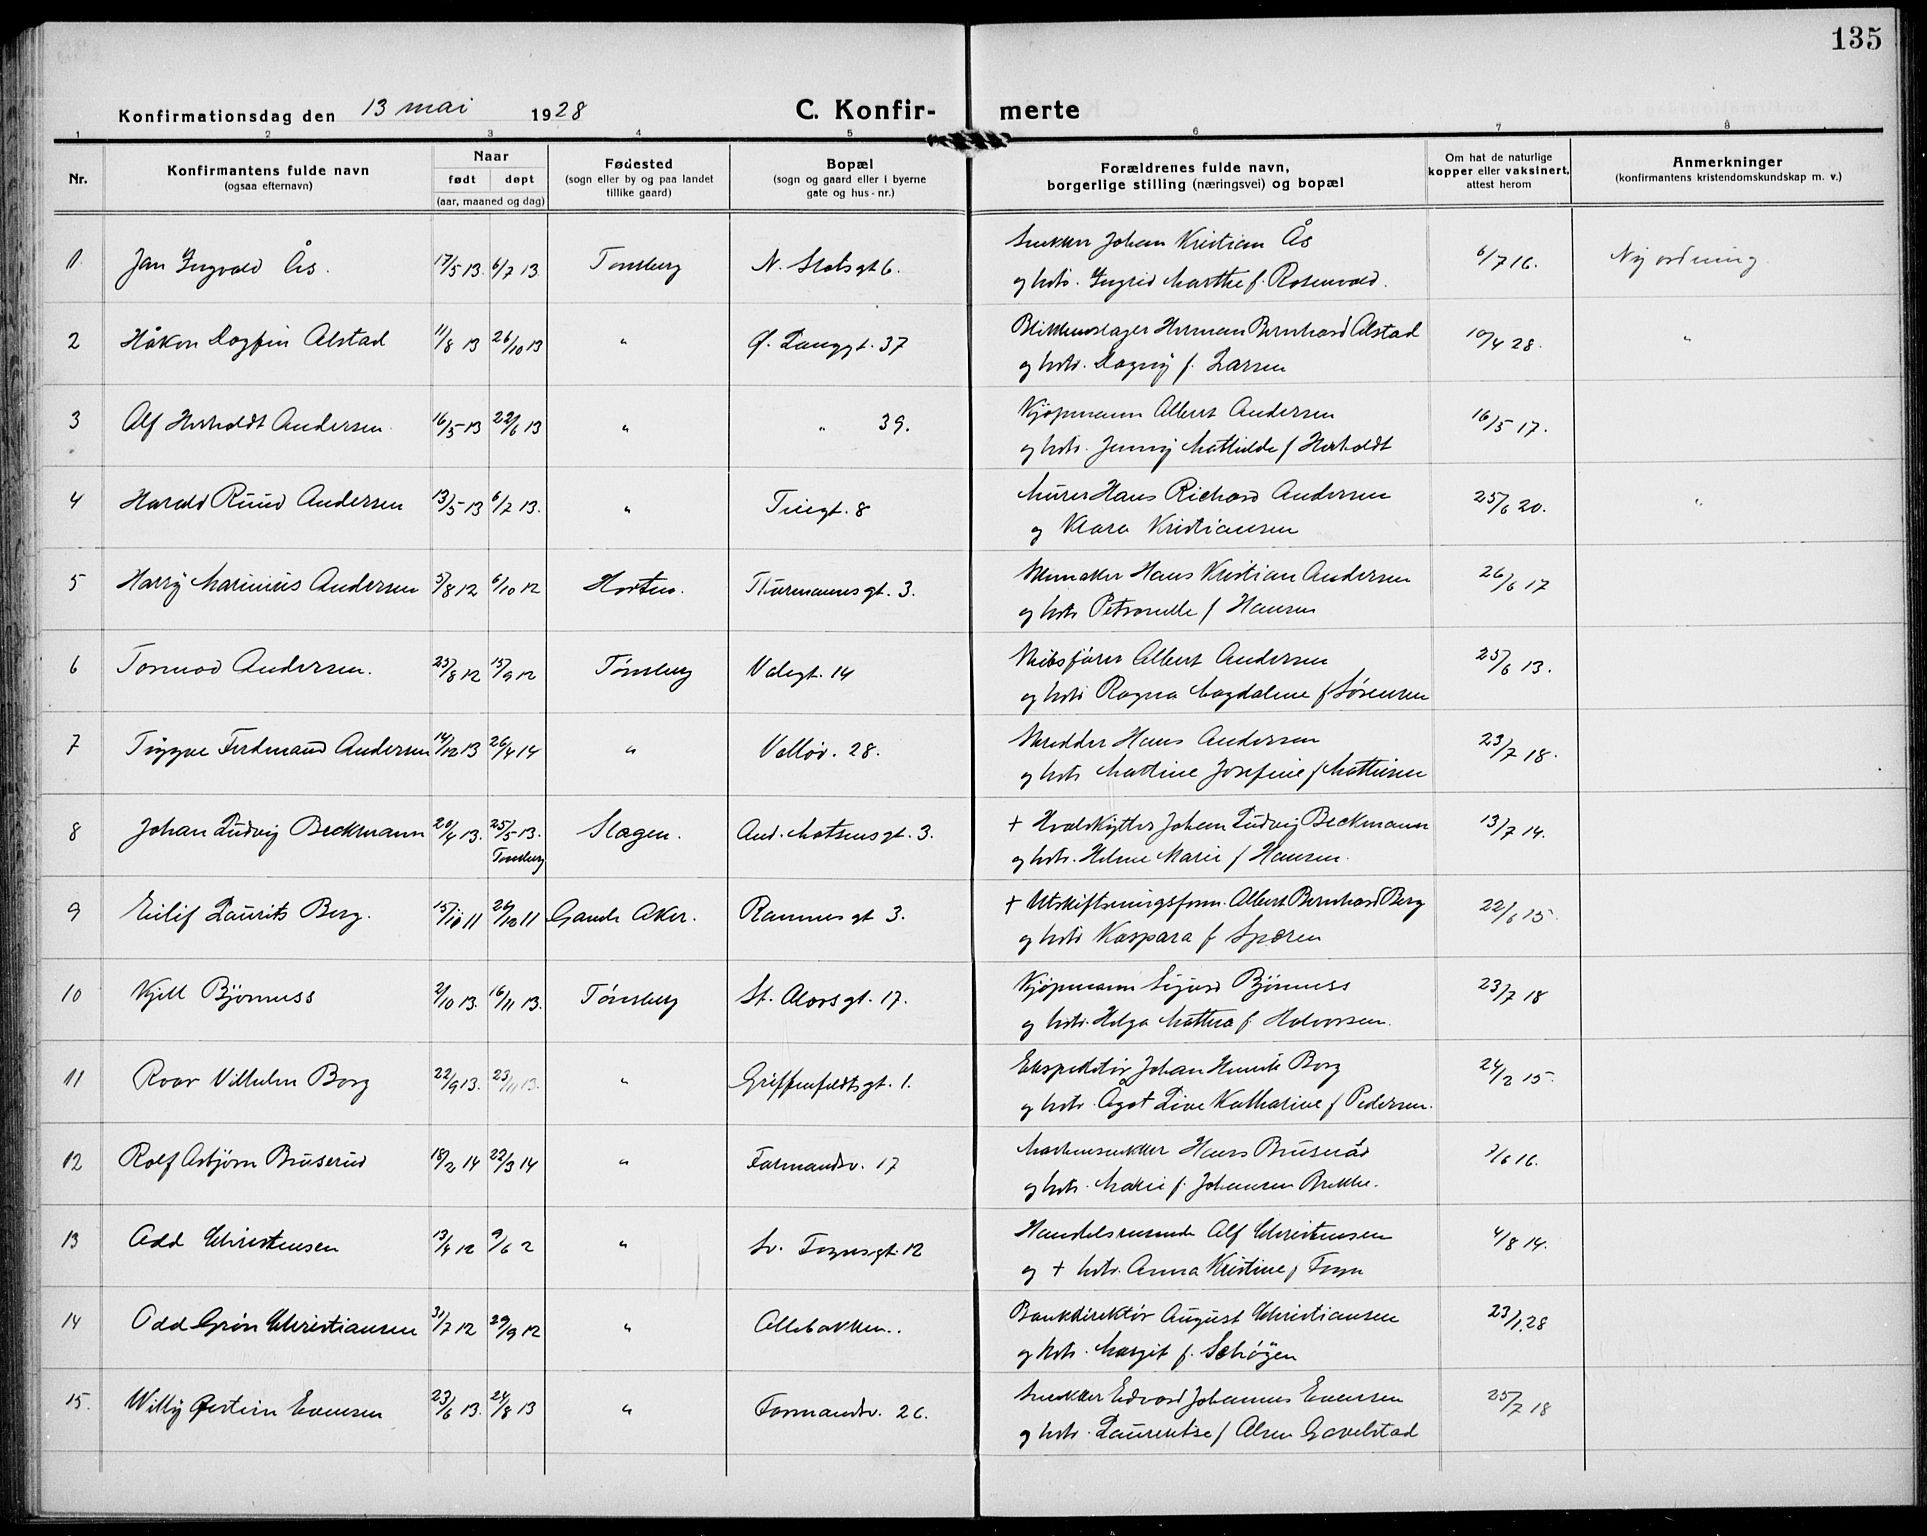 135
Konfirmationsdag den 13 mai 1928
C. Konfir-merte
1 2 3 4 5 6 7 8
Nr.
Konfirmantens fulde navn
(ogsaa efternavn)
Naar
født døpt
(aar, maaned og dag)
Fødested
(sogn eller by og paa landet
tillike gaard)
Bopæl
(sogn og gaard eller i byerne
gate og hus-nr.)
Forældrenes fulde navn,
borgerlige stilling (næringsvei) og bopæl
Om hat de naturlige
kopper eller vaksinert,
attest herom
Anmerkninger
(konfirmantens kristendomskundskap m. v.)
1. Jan Ingvald Ås. 17/5 13. 6/7 13. Tønsberg N. Slotsgt 6. Snekker Johan Kristian Ås 6/7 16. Ny ordning
og hstr. Ingrid Marthe f. Rosenvold.
2 Håkon Dagfin Alstad 11/8 13 26/10 13 " Ø. Langgt. 37 Blikkenslager Herman Bernhard Alstad 10/4 28. "
og hstr. Dagny f. Larsen
3 Alf Herholdt Andersen. 16/5 13 22/6 13 " " 39. Kjøpmann Albert Andersen 16/5 17.
og hstr. Jenny Mathilde f Herholdt
4 Harald Ruud Andersen 13/5 13 6/7 13. " Tiegt. 8 Murer Hans Richard Andersen 25/6 20. "
og Klara Kristiansen
5 Harry Marinius Andersen 5/8 12 6/10 12 Horten. Thurmannsgt. 3. Skomaker Hans Kristian Andersen 26/6 17
og hstr Petronelle f Hansen
6 Tormod Andersen. 25/8 12 15/9 12 Tønsberg Valegt. 14 Skibsfører Albert Andersen 25/6 13.
og hstr Ragna Magdalene f Sørensen
7 Trygve Ferdinand Andersen 14/12 13 26/4 14 " Valløv. 28. Skredder Hans Andersen 23/7 18.
og hstr Martine Josefine f Mathisen
8 Johan Ludvig Beckmann 20/4 13. 25/5 13. Slagen. And. Matsensgt. 3. + Hvalskytter Johan Ludvig Beckmann 13/7 14.
Tønsberg
og hstr. Helene Marie f Hansen.
9 Eilif Laurits Berg. 15/10 11 26/12 11 Gamle Aker. Ramnesgt 3. + Utskiftningsform. Albert Bernhard Berg 22/6 15.
og hstr Kaspara f Spæren
10 Kjell Bjørness 2/10 13. 16/11 13. Tønsberg St. Olavsgt. 17. Kjøpmann Sigurd Bjørness 23/7 18
og hstr. Helga Mathea f. Halvorsen.
11 Roar Vilhelm Borg 22/9 13. 23/11 13. " Griffenfeldtsgt. 1. Ekspeditør Johan Henrik Borg 24/2 15.
og hstr. Ågot Live Katharine f Pedersen.
12 Rolf Asbjørn Bruserud 18/2 14 22/3 14 " Farmandsv. 17 Maskinsnekker Hans Bruseråd 7/6 16.
og hstr. Marie f. Johansen Brekke.
13 Odd Christensen 13/4 12 9/6 2 " Sv. Foynsgt. 12 Handelsreisende Alf Christensen 4/8 14.
og + hstr. Anna Kristine f Foyn
14 Odd Grøn Christiansen 31/7 12 29/9 12 " Allebakken.. Bankdirektør August Christiansen 23/1.28
og hstr. Margit f. Schøyen
15. Willy Østein Evensen 23/6 13. 24/8 13 " Farmandsv. 26. Snekker Edvard Johannes Evensen 25/7 18
og hstr. Laurentse f Olsen Gavelstad